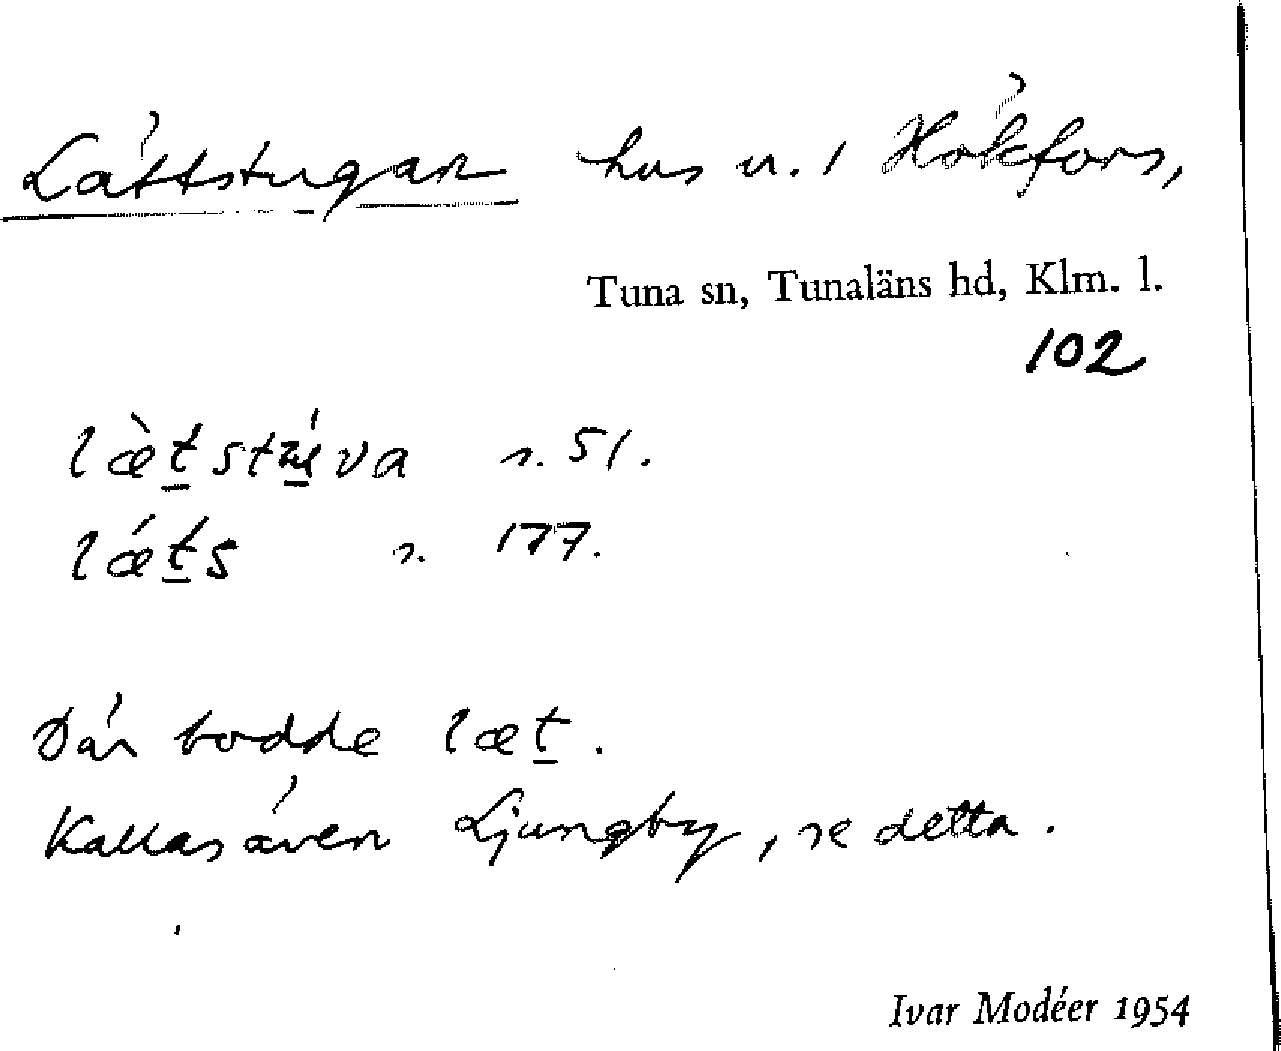 Lättstugan hus u. / Hökfors,
Tuna sn, Tunaläns hd, Klm. l.
102
s. 51.
lǽt̲s s. 177.
Där bodde læt̲.
Kallas även Ljungby, se detta.
Ivar Modéer 1954